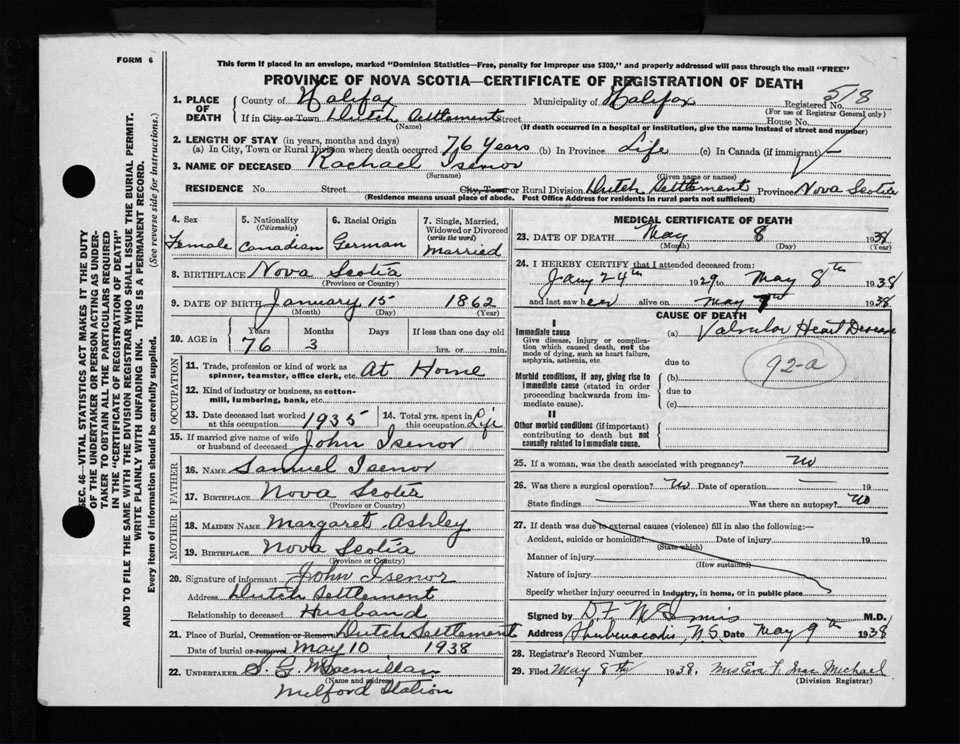 FORM 6
This form if placed in an envelope, marked "Dominion Statistics—Free, penalty for improper use $300," and properly addressed will pass through the mail "FREE"
PROVINCE OF NOVA SCOTIA—CERTIFICATE OF REGISTRATION OF DEATH
SEC. 46—VITAL STATISTICS ACT MAKES IT THE DUTY
OF THE UNDERTAKER OR PERSON ACTING AS UNDER-
TAKER TO OBTAIN ALL THE PARTICULARS REQUIRED
IN THE "CERTIFICATE OF REGISTRATION OF DEATH"
AND TO FILE THE SAME WITH THE DIVISION REGISTRAR WHO SHALL ISSUE THE BURIAL PERMIT.
WRITE PLAINLY WITH UNFADING INK. THIS IS A PERMANENT RECORD.
Every item of information should be carefully supplied. (See reverse side for instructions.)
1. PLACE OF DEATH County of Halifax Municipality of Halifax Registered No. 518
(For use of Registrar General only)
If in City or Town Dutch Settlement Street House No.
(Name) (If death occurred in a hospital or institution, give the name instead of street and number)
2. LENGTH OF STAY (in years, months and days)
(a) In City, Town or Rural Division where death occurred 76 years (b) In Province Life (c) In Canada (if immigrant) —
3. NAME OF DECEASED Rachael Isenor
(Surname) (Given name or names)
RESIDENCE No. Street City, Town or Rural Division Dutch Settlement Province Nova Scotia
(Residence means usual place of abode. Post Office Address for residents in rural parts not sufficient)
4. Sex Female
5. Nationality (Citizenship) Canadian
6. Racial Origin German
7. Single, Married, Widowed or Divorced (write the word) Married
8. BIRTHPLACE Nova Scotia
(Province or Country)
9. DATE OF BIRTH January 15 1862
(Month) (Day) (Year)
10. AGE in Years 76 Months 3 Days If less than one day old hrs. or min.
OCCUPATION
11. Trade, profession or kind of work as spinner, teamster, office clerk, etc. At Home
12. Kind of industry or business, as cotton-mill, lumbering, bank, etc.
13. Date deceased last worked at this occupation 1935
14. Total yrs. spent in this occupation Life
15. If married give name of wife or husband of deceased John Isenor
FATHER
16. NAME Samuel Isenor
17. BIRTHPLACE Nova Scotia
(Province or Country)
MOTHER
18. MAIDEN NAME Margaret Ashley
19. BIRTHPLACE Nova Scotia
(Province or Country)
20. Signature of informant John Isenor
Address Dutch Settlement
Relationship to deceased Husband
21. Place of Burial, Cremation or Removal Dutch Settlement
Date of burial or removal May 10 1938
22. UNDERTAKER S. G. Macmillan
(Name and address)
Milford Station
MEDICAL CERTIFICATE OF DEATH
23. DATE OF DEATH May 8 1938
(Month) (Day) (Year)
24. I HEREBY CERTIFY that I attended deceased from:
Jany 24th 1929 to May 8th 1938
and last saw her alive on May 1938
CAUSE OF DEATH
I
Immediate cause (a) Valvular Heart Disease
Give disease, injury or complication which caused death, not the mode of dying, such as heart failure, asphyxia, asthenia, etc.
92-a
due to
Morbid conditions, if any, giving rise to immediate cause (stated in order proceeding backwards from immediate cause). (b)
due to
(c)
II
Other morbid conditions (if important) contributing to death but not causally related to immediate cause.
25. If a woman, was the death associated with pregnancy? No
26. Was there a surgical operation? No Date of operation — 19
State findings — Was there an autopsy? No
27. If death was due to external causes (violence) fill in also the following:—
Accident, suicide or homicide? Date of injury 19
(State which)
Manner of injury
(How sustained)
Nature of injury
Specify whether injury occurred in industry, in home, or in public place
Signed by M.D.
Address Shubenacadie, N.S. Date May 9th 1938
28. Registrar's Record Number
29. Filed May 8th 1938. Mrs Eva F. MacMichael
(Division Registrar)